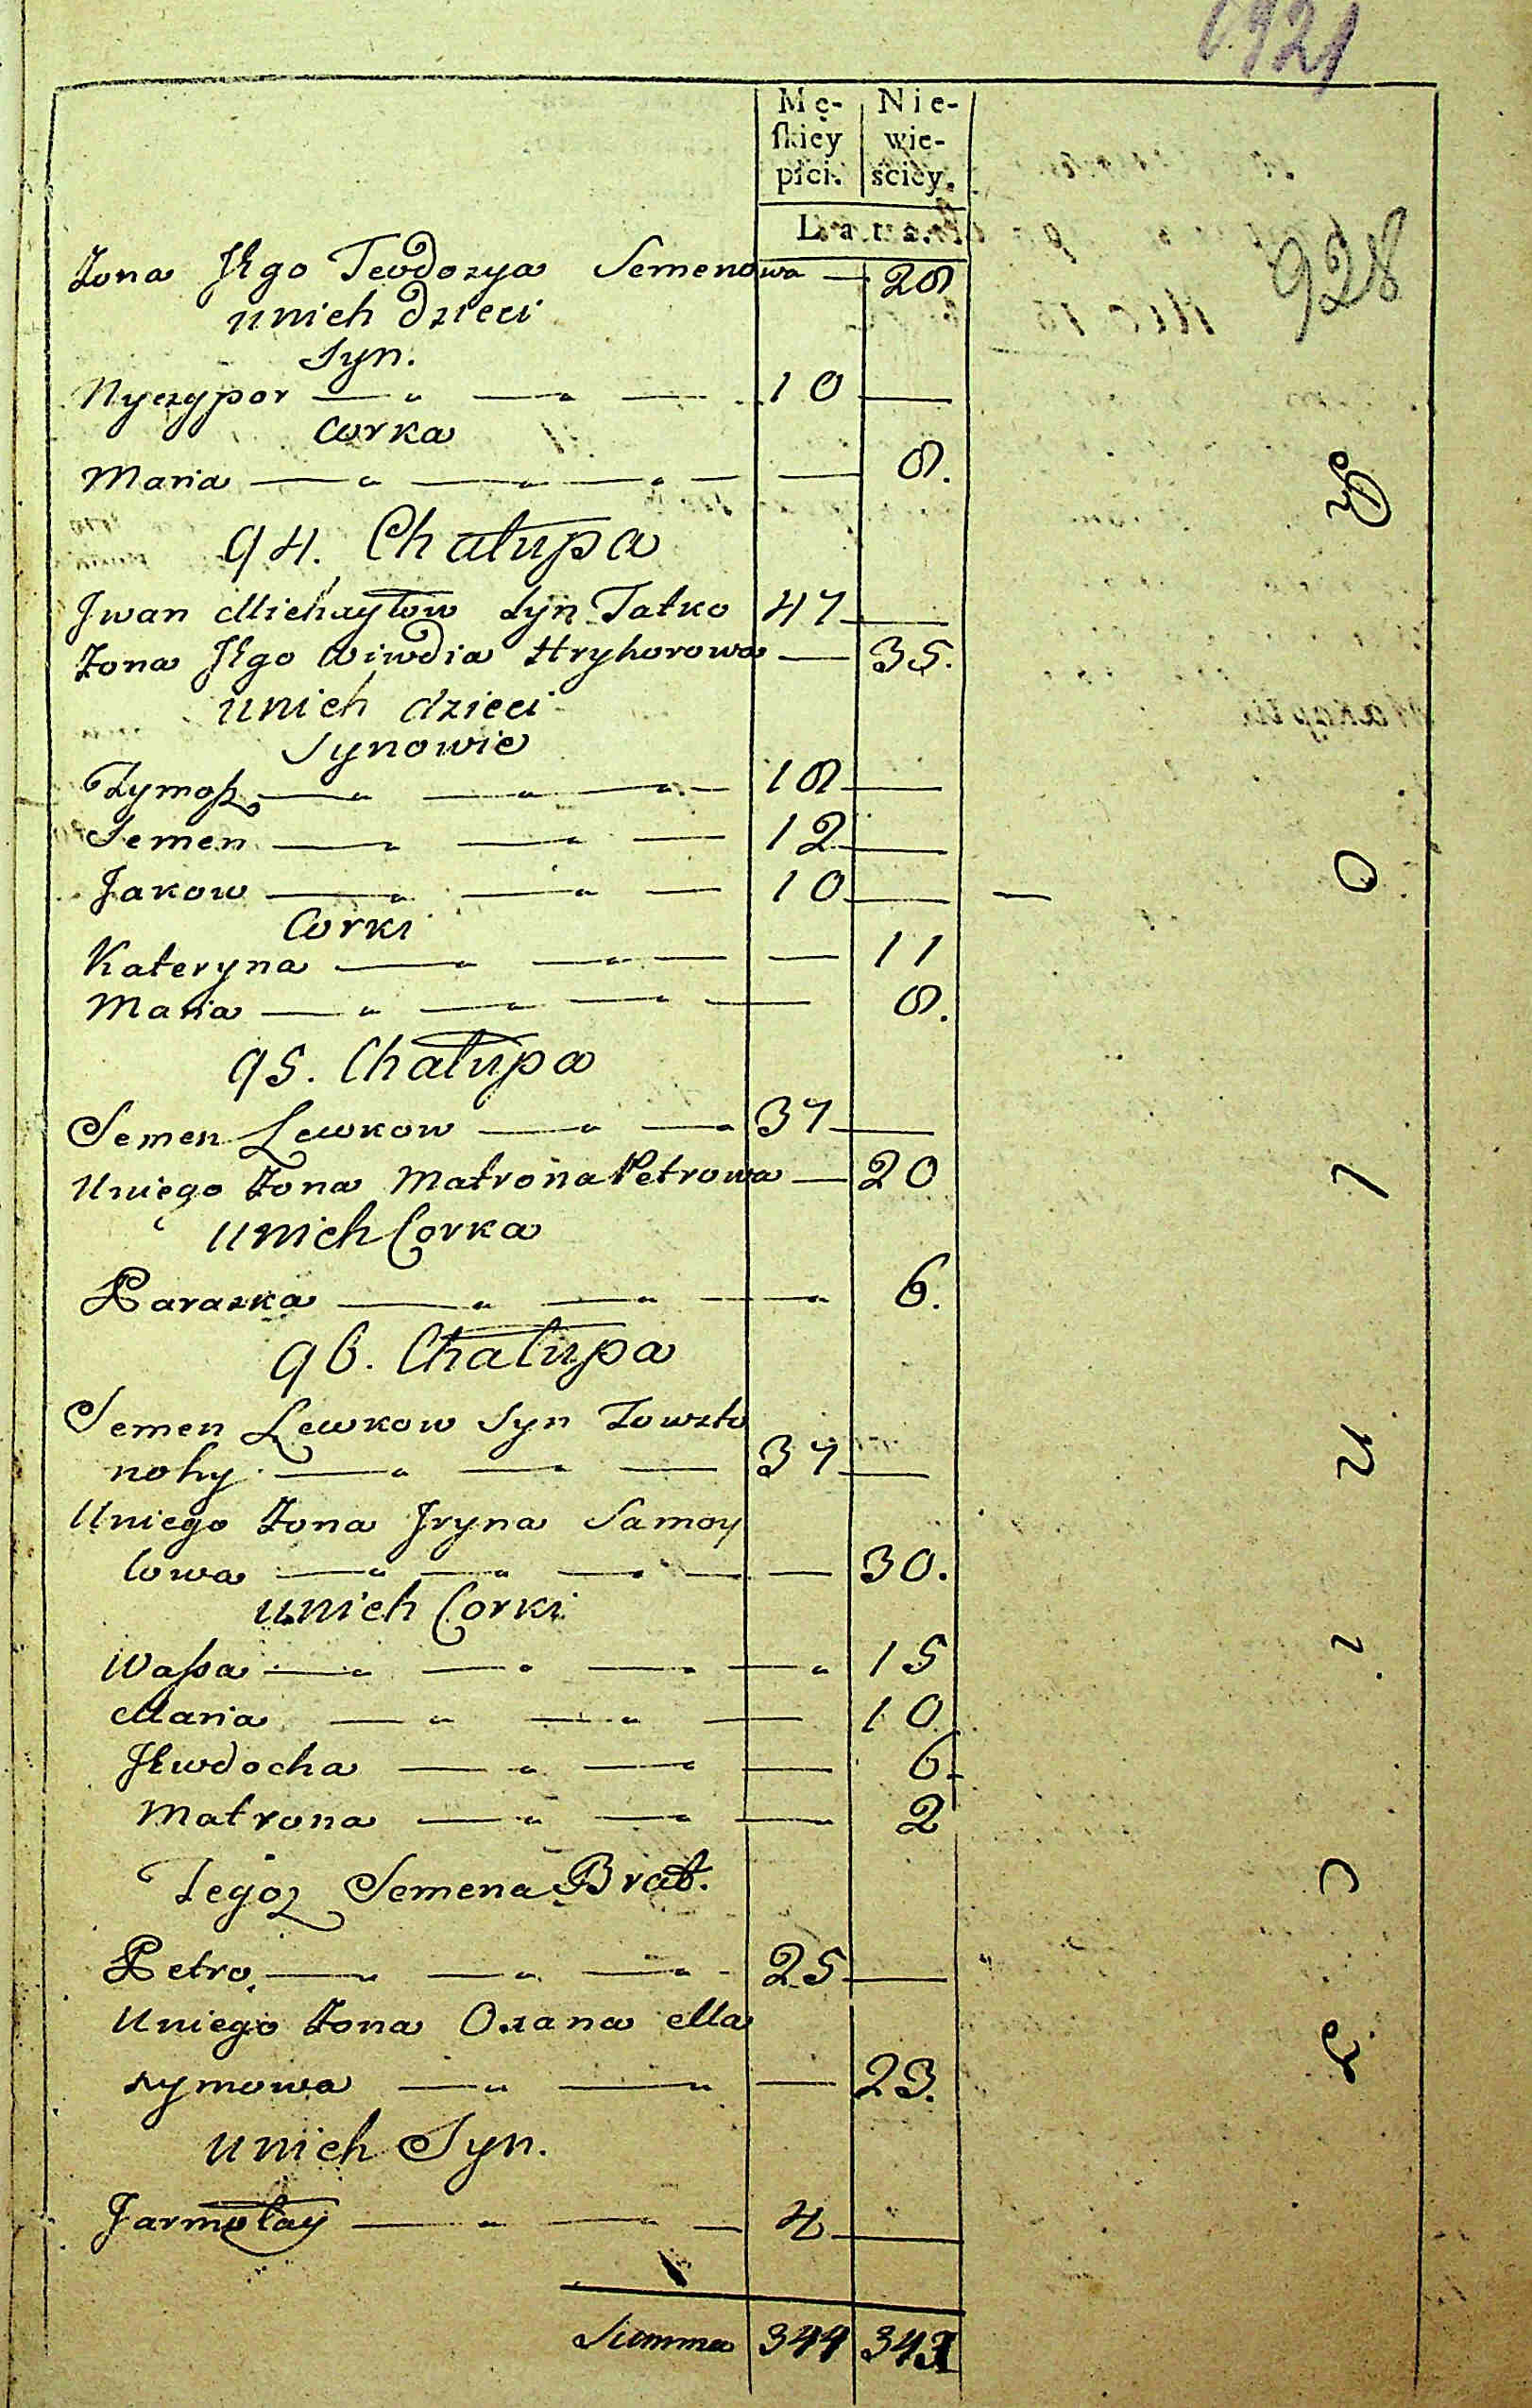 1921
Mę- Nie-
skiey wie-
płci. ściey.
Lata.
928
Żona Jego Teodozya Semenowa — 28
unich dzieci
Syn.
Nyczypor — 10 —
Corka
Maria — — 8.
94. Chałupa
Jwan Michayłow Syn Tatko 47 —
Żona Jego Wiwdia Hryhorowa — 35.
unich dzieci
Synowie
Tymosz — 18 —
Semen — 12 —
Jakow — 10 —
Corki
Kateryna — — 11
Maria — — 8.
95. Chałupa
Semen Lewkow — 37 —
Uniego Żona Matrona Petrowa — 20
unich Corka
Paraska — 6.
96. Chałupa
Semen Lewkow Syn Towsto
nohy — 37 —
Uniego Żona Jryna Samoy
lowa — — 30.
unich Corki
Wassa — 15
Maria — 10
Jewdocha — 6
Matrona — 2
Tegoz Semena Brat.
Petro — 25 —
Uniego Żona Oxana Ma
xymowa — — 23.
unich Syn.
Jarmołay — 4 —
Summa 344 343